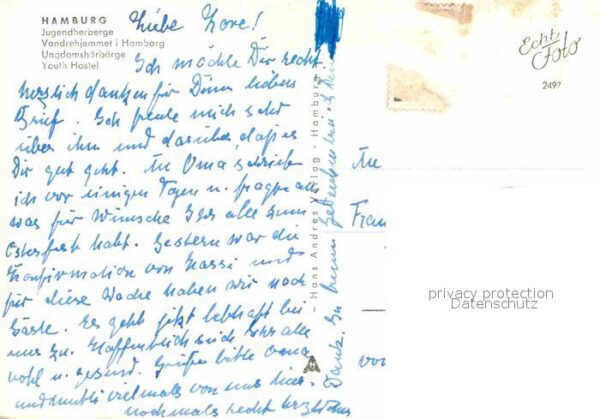 HAMBURG
Jugendherberge
Vandrehjemmet i Hamborg
Ungdomshärbärge
Youth Hostel
Liebe Lore!
Ich möchte Dir recht
herzlich danken für Deinen lieben
Brief. Ich freute mich sehr
über ihn und darüber, daß es
Dir gut geht. An Oma schrieb
ich vor einigen Tagen u. fragte an,
was für Wünsche Ihr alle zum
Osterfest habt. Gestern war die
Konfirmation von und
für diese Woche haben wir noch
Gäste. Es geht jetzt lebhaft bei
uns zu. Hoffentlich seid Ihr alle
wohl u. gesund. Grüße bitte Oma
und Mutti vielmals von uns hier.
nochmals recht herzlichen
Dank. Zu
- Hans Andres Verlag - Hamburg
Echt
Foto
2497
An
Frau
privacy protection
Datenschutz